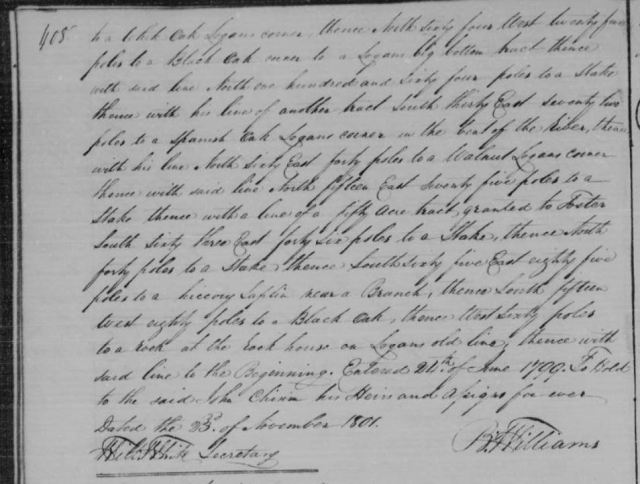 405
to a White Oak Logans corner, thence North Sixty four West twenty five
poles to a Black Oak corner to a Logans big bottom tract thence
with said line North one hundred and Sixty four poles to a Stake
thence with his line of another tract South thirty East seventy two
poles to a Spanish Oak Logans corner in the bent of the River, thence
with his line North Sixty East forty poles to a Walnut Logans corner
thence with said line North fifteen East Seventy five poles to a
Stake thence with a line of a fifty acre tract, granted to Foster
South Sixty three East forty six poles to a Stake, thence North
forty poles to a Stake thence South sixty five East eighty five
poles to a hiccory Saplin near a Branch, thence South fifteen
West eighty poles to a Black Oak, thence West Sixty poles
to a rock at the rock house on Logans old line, thence with
said line to the Beginning. Entered 24th of June 1799. To Hold
to the said John his Heirs and Assigns for ever
Dated the 23d of November 1801.
Will White Secretary
B Williams